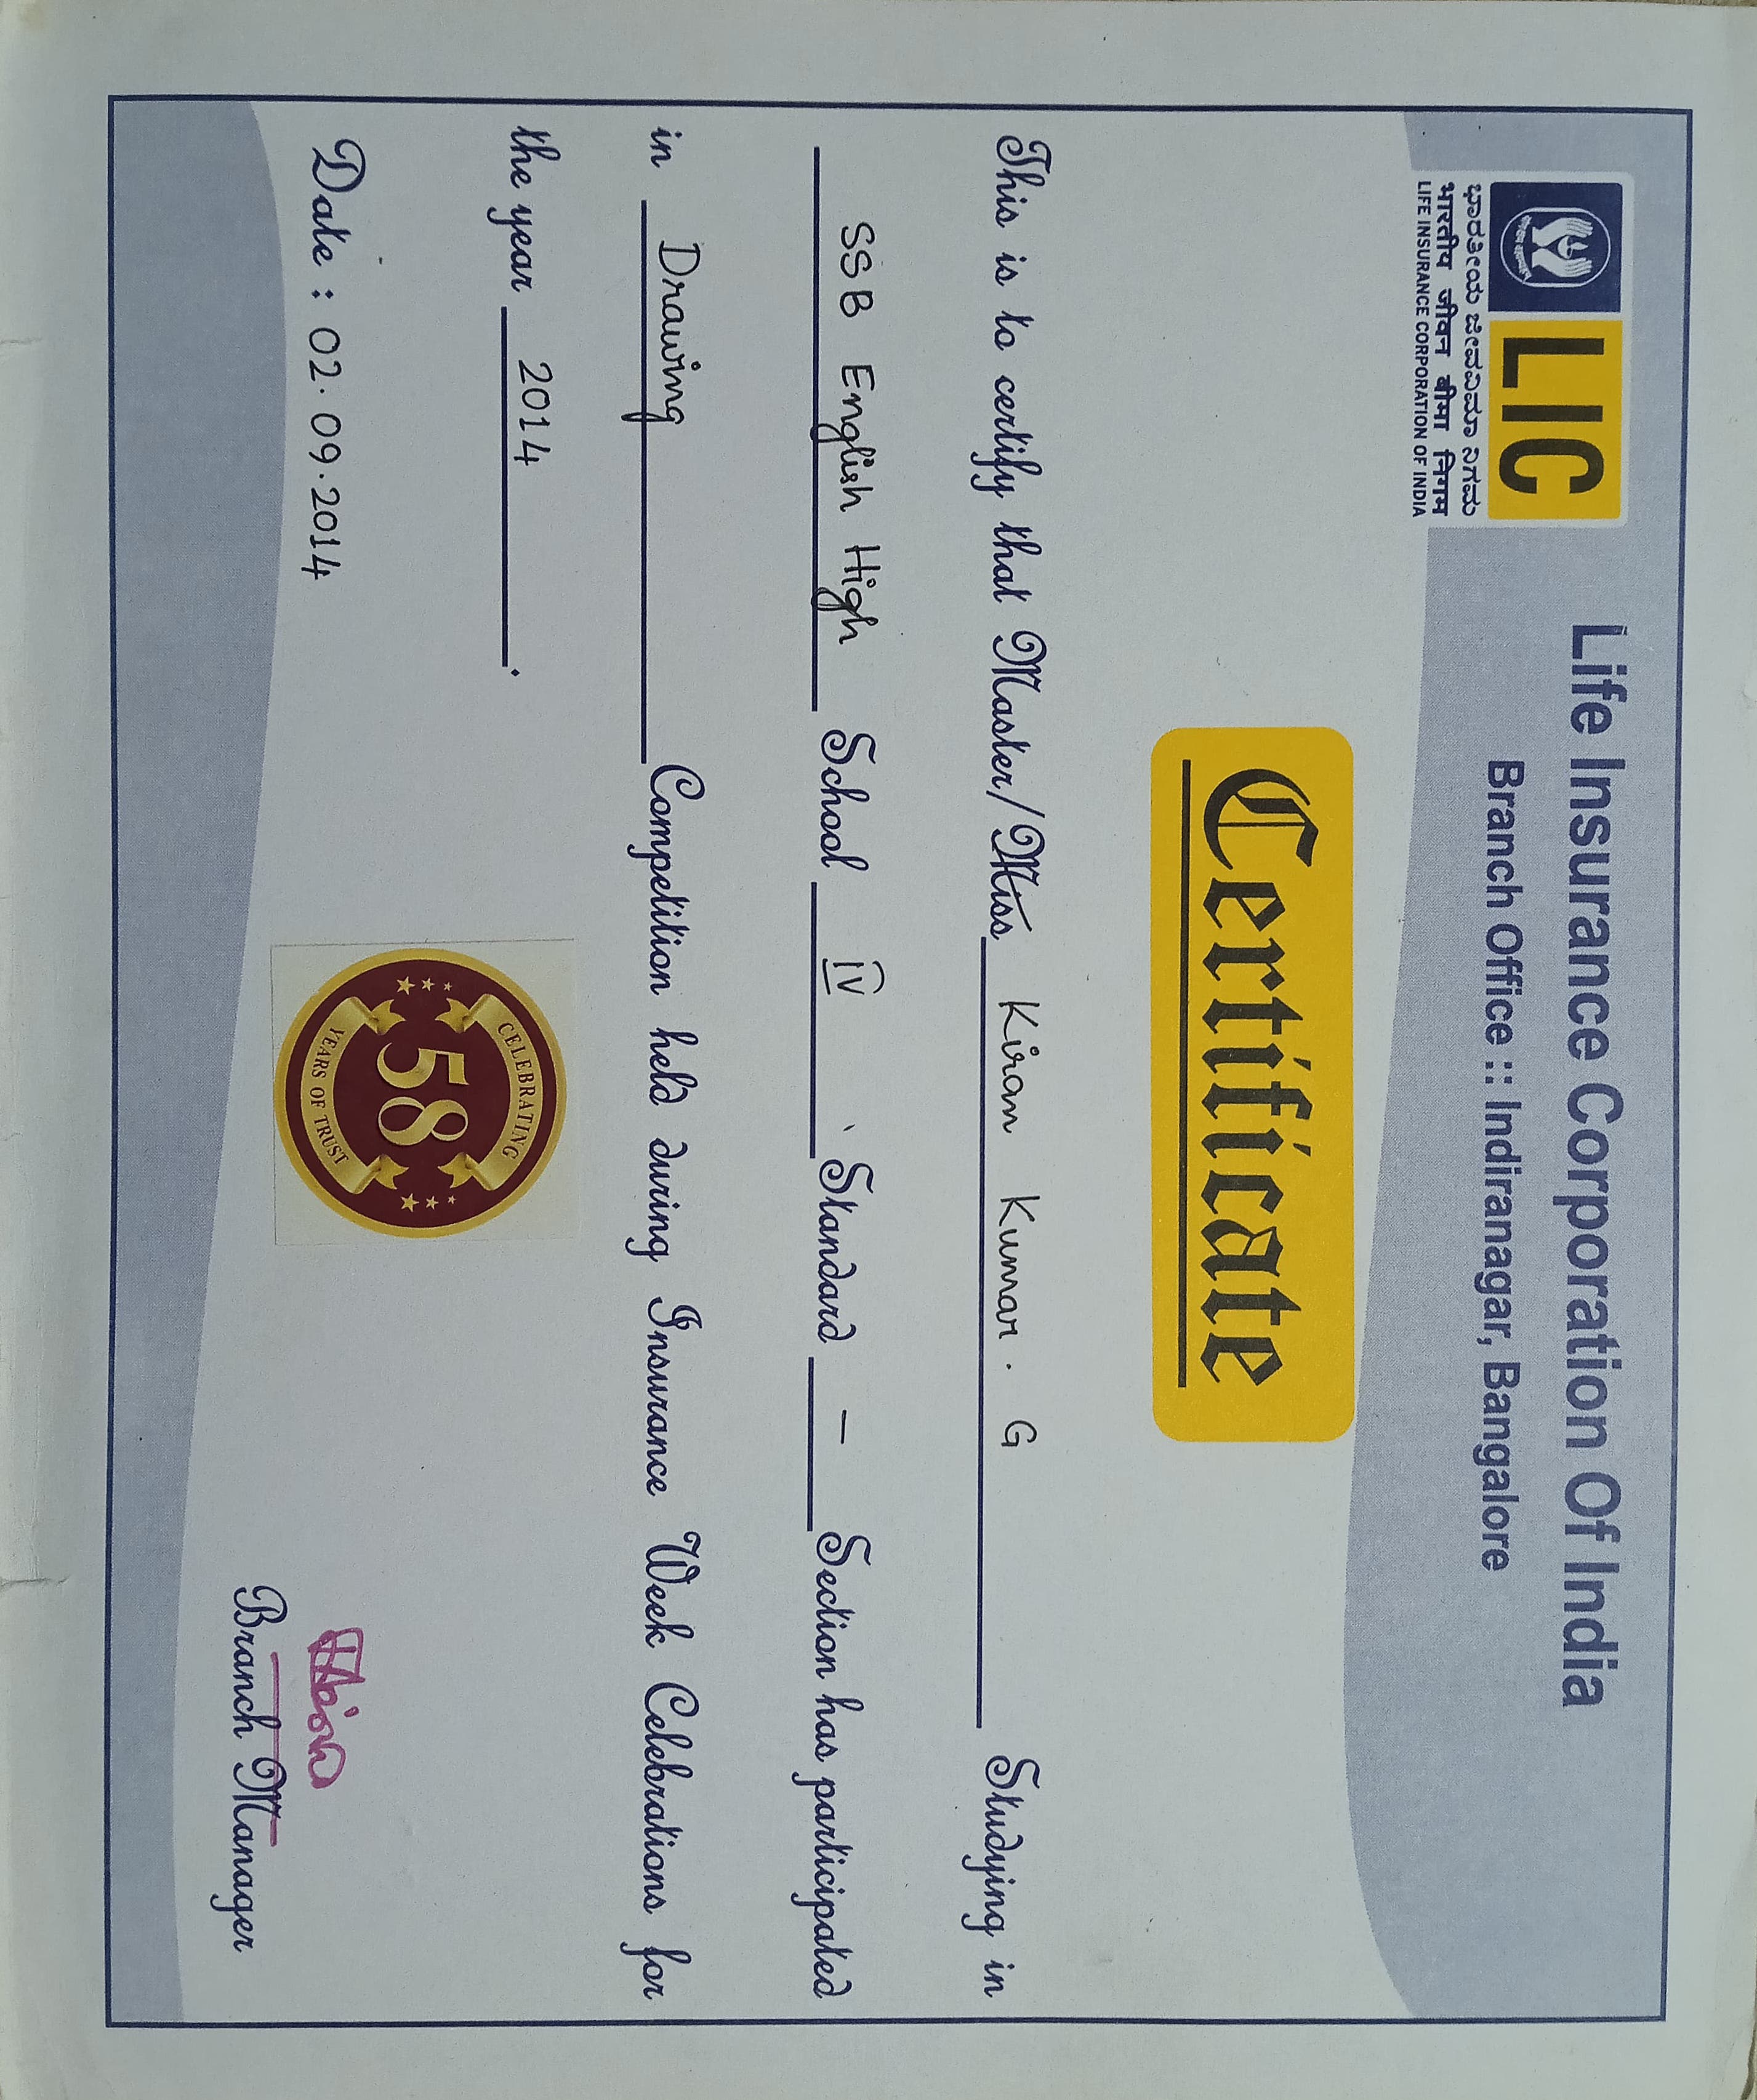 LIC
ಭಾರತೀಯ ಜೀವವಿಮಾ ನಿಗಮ
भारतीय जीवन बीमा निगम
LIFE INSURANCE CORPORATION OF INDIA
Life Insurance Corporation Of India
Branch Office :: Indiranagar, Bangalore
Certificate
This is to certify that Master/Miss Kiran Kumar. G Studying in
SSB English High School IV Standard — Section has participated
in Drawing Competition held during Insurance Week Celebrations for
the year 2014.
CELEBRATING
58
YEARS OF TRUST
Date : 02.09.2014
Branch Manager